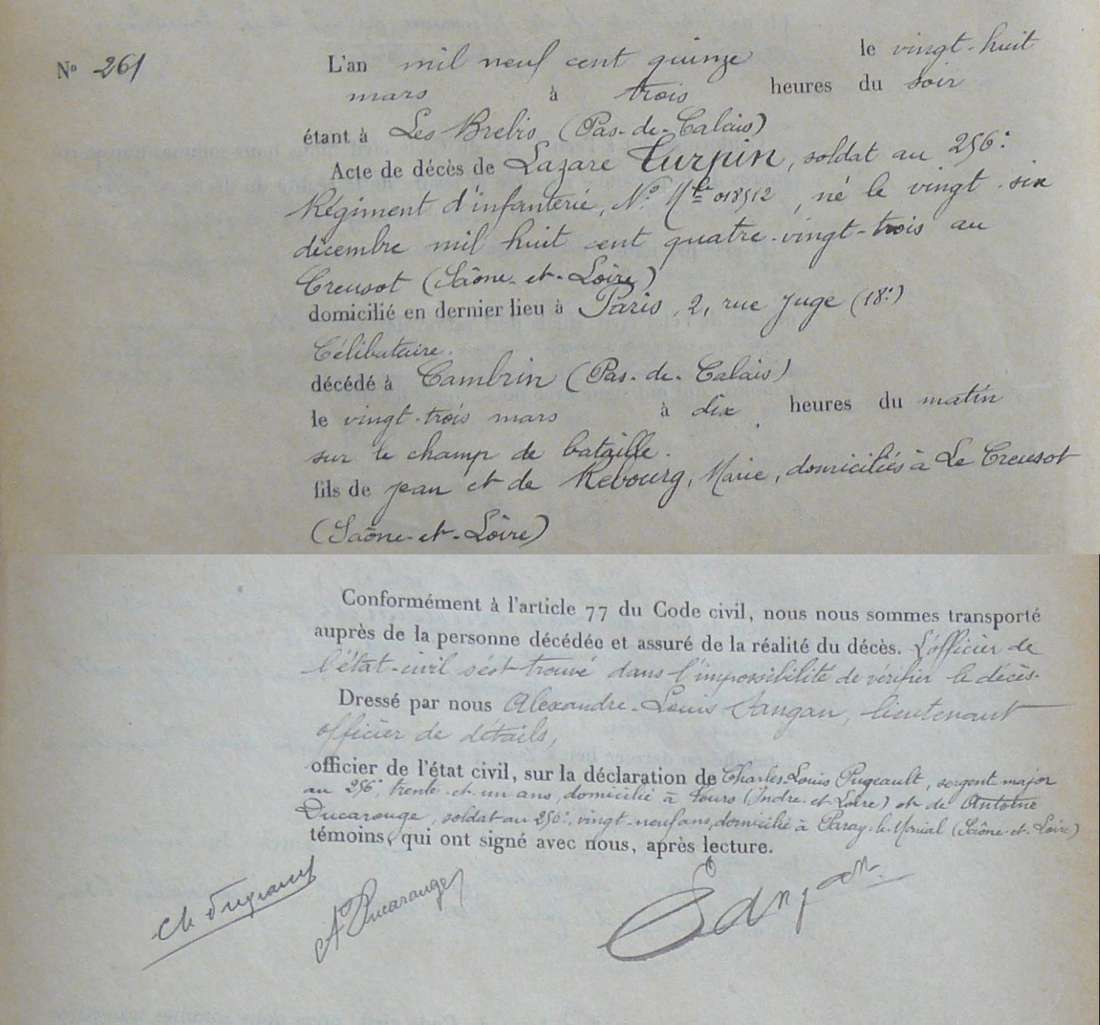 N° 261
L'an mil neuf cent quinze le vingt-huit
mars à trois heures du soir
étant à Les Brebis (Pas-de-Calais)
Acte de décès de Lazare Turpin, soldat au 256e
Régiment d'infanterie, N° Mle 018512, né le vingt-six
décembre mil huit cent quatre-vingt-trois au
Creusot (Saône-et-Loire)
domicilié en dernier lieu à Paris, 2, rue Juge (18e)
Célibataire.
décédé à Cambrin (Pas-de-Calais)
le vingt-trois mars à dix heures du matin
sur le champ de bataille.
fils de Jean et de Rebourg, Marie, domiciliés à Le Creusot
(Saône-et-Loire)
Conformément à l'article 77 du Code civil, nous nous sommes transporté
auprès de la personne décédée et assuré de la réalité du décès. L'officier de
l'état-civil s'est trouvé dans l'impossibilité de vérifier le décès.
Dressé par nous Alexandre-Louis Sangan, lieutenant
officier de détails,
officier de l'état civil, sur la déclaration de Charles Louis Pugeault, sergent major
au 256e, trente-et-un ans, domicilié à Tours (Indre-et-Loire) et de Antoine
Ducarouge, soldat au 256e, vingt-neuf ans, domicilié à Paray-le-Monial (Saône-et-Loire)
témoins, qui ont signé avec nous, après lecture.
A Ducarouge